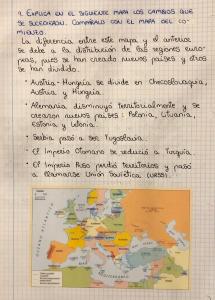 1. EXPLICA EN EL SIGUIENTE MAPA LOS CAMBIOS QUE
SE SUCEDIERON. COMPÁRALO CON EL MAPA DEL CO-
MIENZO.
La diferencia entre este mapa y el anterior
se debe a la distribución de las regiones euro-
peas, pues se han creado nuevos países y otros
se han dividido.
· Austria-Hungría se divide en Checoslovaquia,
Austria y Hungría.
· Alemania disminuyó territorialmente y se
crearon nuevos países: Polonia, Lituania,
Estonia y Letonia.
· Serbia pasó a ser Yugoslavia.
· El Imperio Otomano se redució a Turquía.
· El Imperio Ruso perdió territorios y pasó
a llamarse Unión Soviética (URSS).